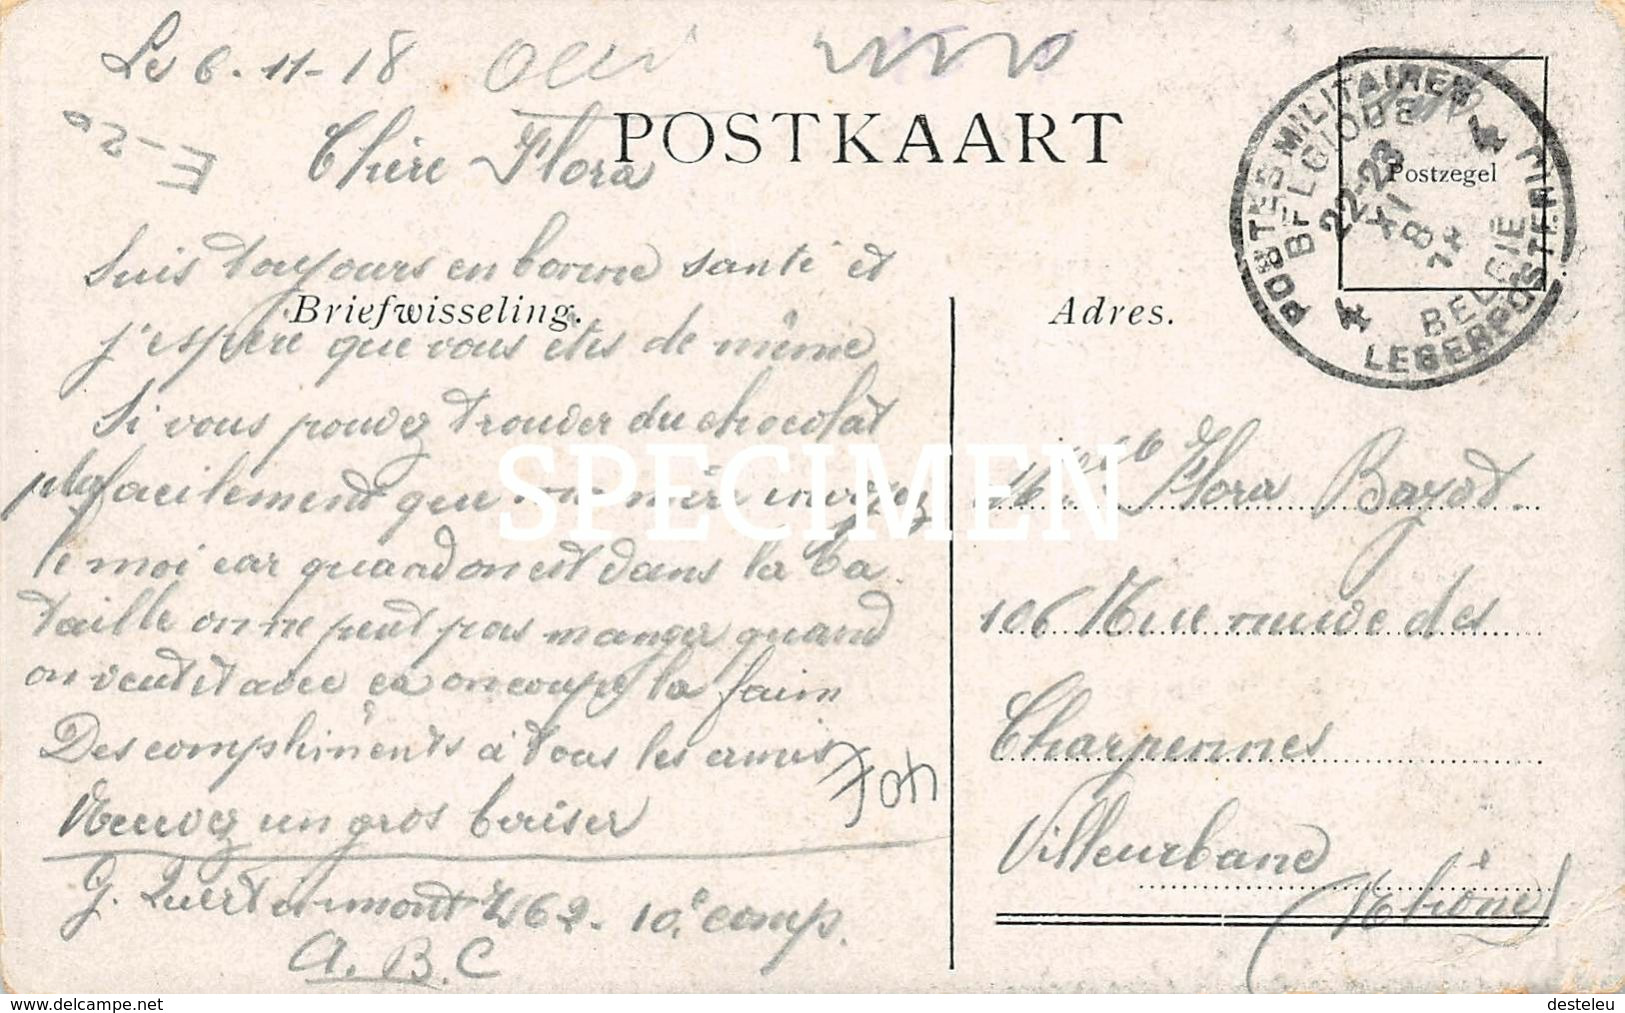 Le 6-11-18
Chère Flora
POSTKAART
Postzegel
POSTES MILITAIRES
BELGIQUE
22-23
XI
18
BELGIË
LEGERPOSTERIJ
Suis toujours en bonne santé et
Briefwisseling.
j'espère que vous êtes de même
Si vous pouvez trouver du chocolat
plus facilement que ma mère envoyez
le moi car quand on est dans la ba
taille on ne peut pas manger quand
on veut et avec ça on coupe la faim
Des compliments à tous les amis
Recevez un gros baiser
G. Quertinmont Z 162. 10e comp.
A.B.C
Adres.
Melle Flora Bayot.
106 Rue neuve des
Charpennes
Villeurbane
(Rhône)
SPECIMEN
www.delcampe.net
desteleu